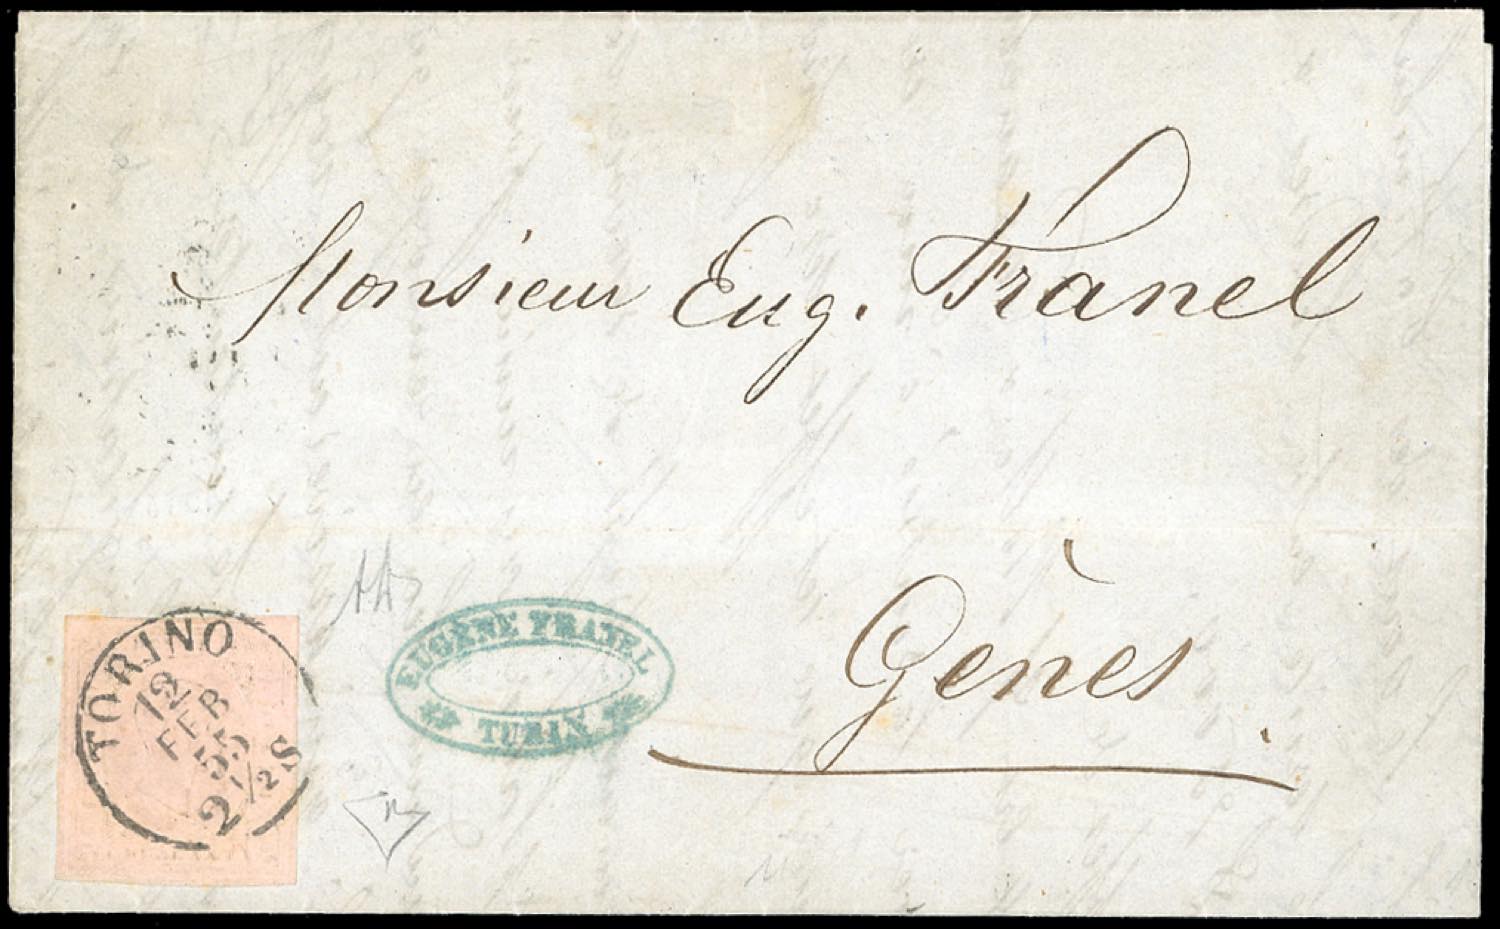 Monsieur Eug. Franel
Gènes
EUGÈNE FRANEL
TURIN
TORINO
12
FEB
55
2 1/2 S